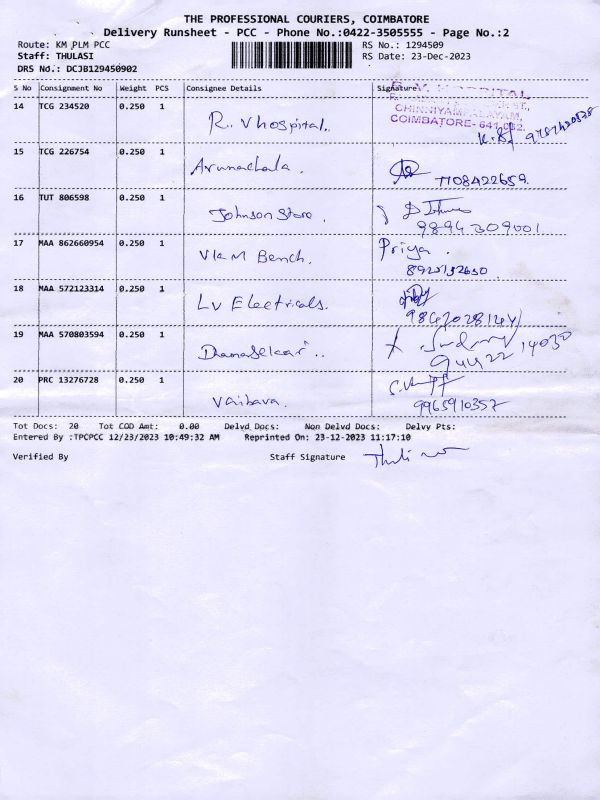 THE PROFESSIONAL COURIERS, COIMBATORE
Delivery Runsheet - PCC - Phone No.:0422-3505555 - Page No.:2
Route: KM PLM PCC RS No.: 1294509
Staff: THULASI RS Date: 23-Dec-2023
DRS No.: DCJB129450902
S No Consignment No Weight PCS Consignee Details Signature
14 TCG 234520 0.250 1 R. V hospital.
HOSPITAL
CHINNIYAMPALAYAM,
COIMBATORE- 641 062.
15 TCG 226754 0.250 1 Arunachala. 7708422659.
16 TUT 806598 0.250 1 Johnson Store. 9894309001
17 MAA 862660954 0.250 1 Bench. Priya.
18 MAA 572123314 0.250 1 LV Electricals.
19 MAA 570803594 0.250 1
20 PRC 13276728 0.250 1 Vaibava. 9965910357
Tot Docs: 20 Tot COD Amt: 0.00 Delvd Docs: Non Delvd Docs: Delvy Pts:
Entered By :TPCPCC 12/23/2023 10:49:32 AM Reprinted On: 23-12-2023 11:17:10
Verified By Staff Signature